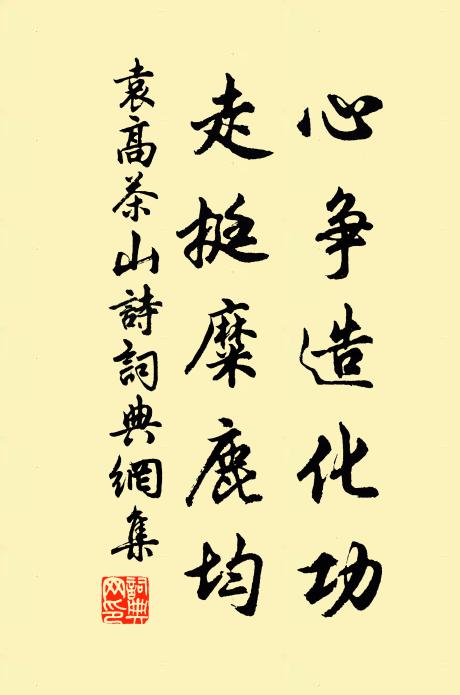 心争造化功
走挺糜鹿均
袁高茶山詩詞典網集
詞典
网印